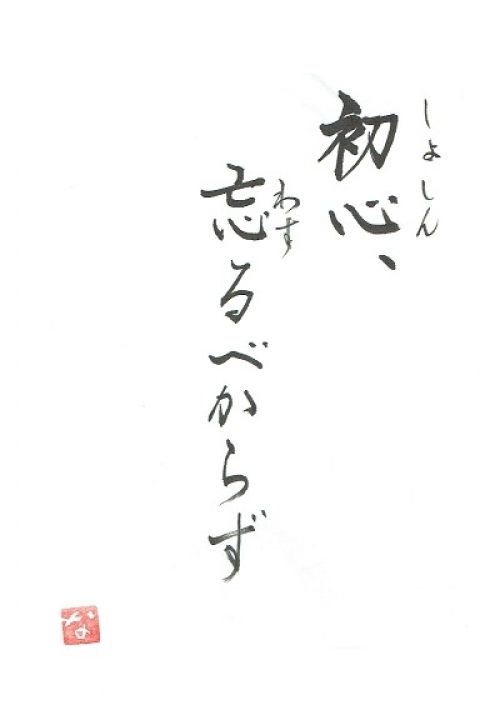 しょしん
初心、
わす
忘るべからず
な